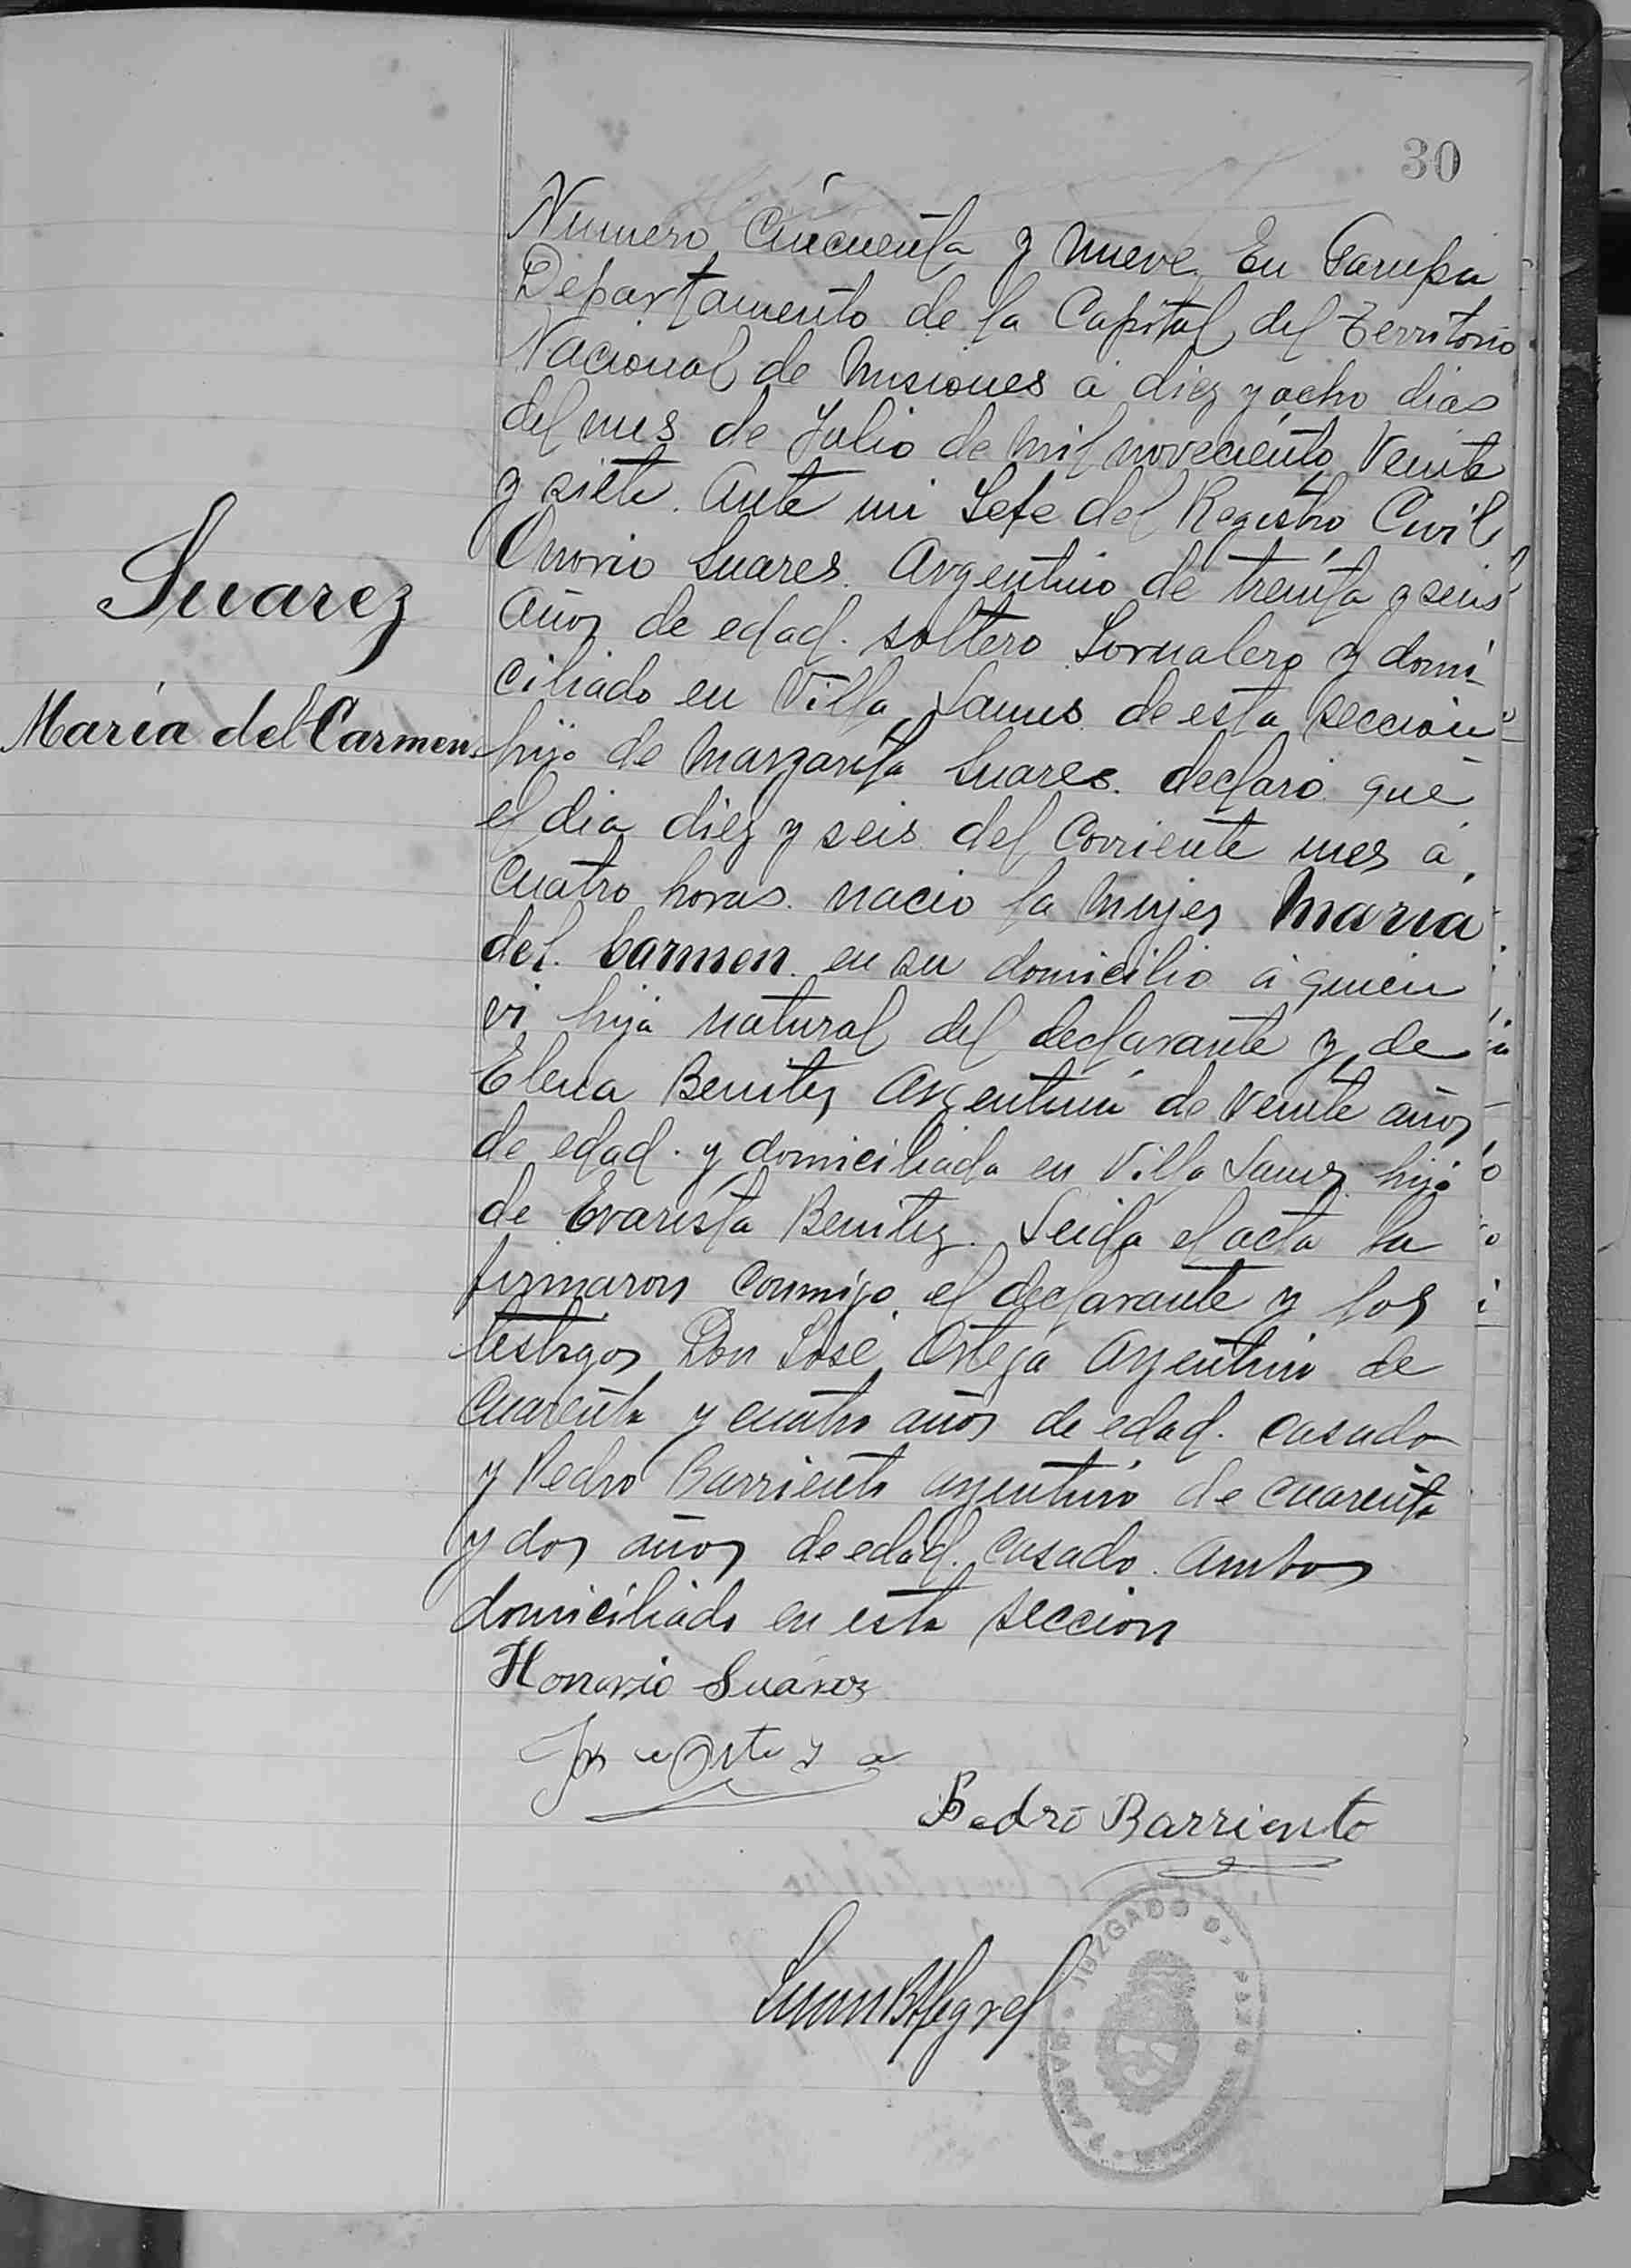 30
Suarez
María del Carmen
Número Cincuenta y nueve. En Garupa
Departamento de la Capital del Territorio
Nacional de Misiones a diez y ocho dias
del mes de Julio de mil noveciento Veinte
y siete. Ante mi Jefe del Registro Civil
Onorio Suares. Argentino de treinta y seis
años de edad. soltero Jornalero y domi
ciliado en Villa Lanus de esta seccion
hijo de Margarita Suares. declaró que
el dia diez y seis del Corriente mes á
cuatro horas. nacio la Mujer Maria
del Carmen en su domicilio á quien
vi hija natural del declarante y de
Elena Benitez Argentina de Veinte años
de edad. y domiciliada en Villa Lanus hija
de Evarista Benitez. Leida el acta la
firmaron conmigo el declarante y los
testigos Don José Ortega Argentino de
Cuarenta y cuatro años de edad. casado
y Pedro Barriento argentino de cuarenta
y dos años de edad. casado. ambos
domiciliado en esta seccion
Honorio Suárez
Jose Ortega
Pedro Barriento
JUZGADO DE PAZ